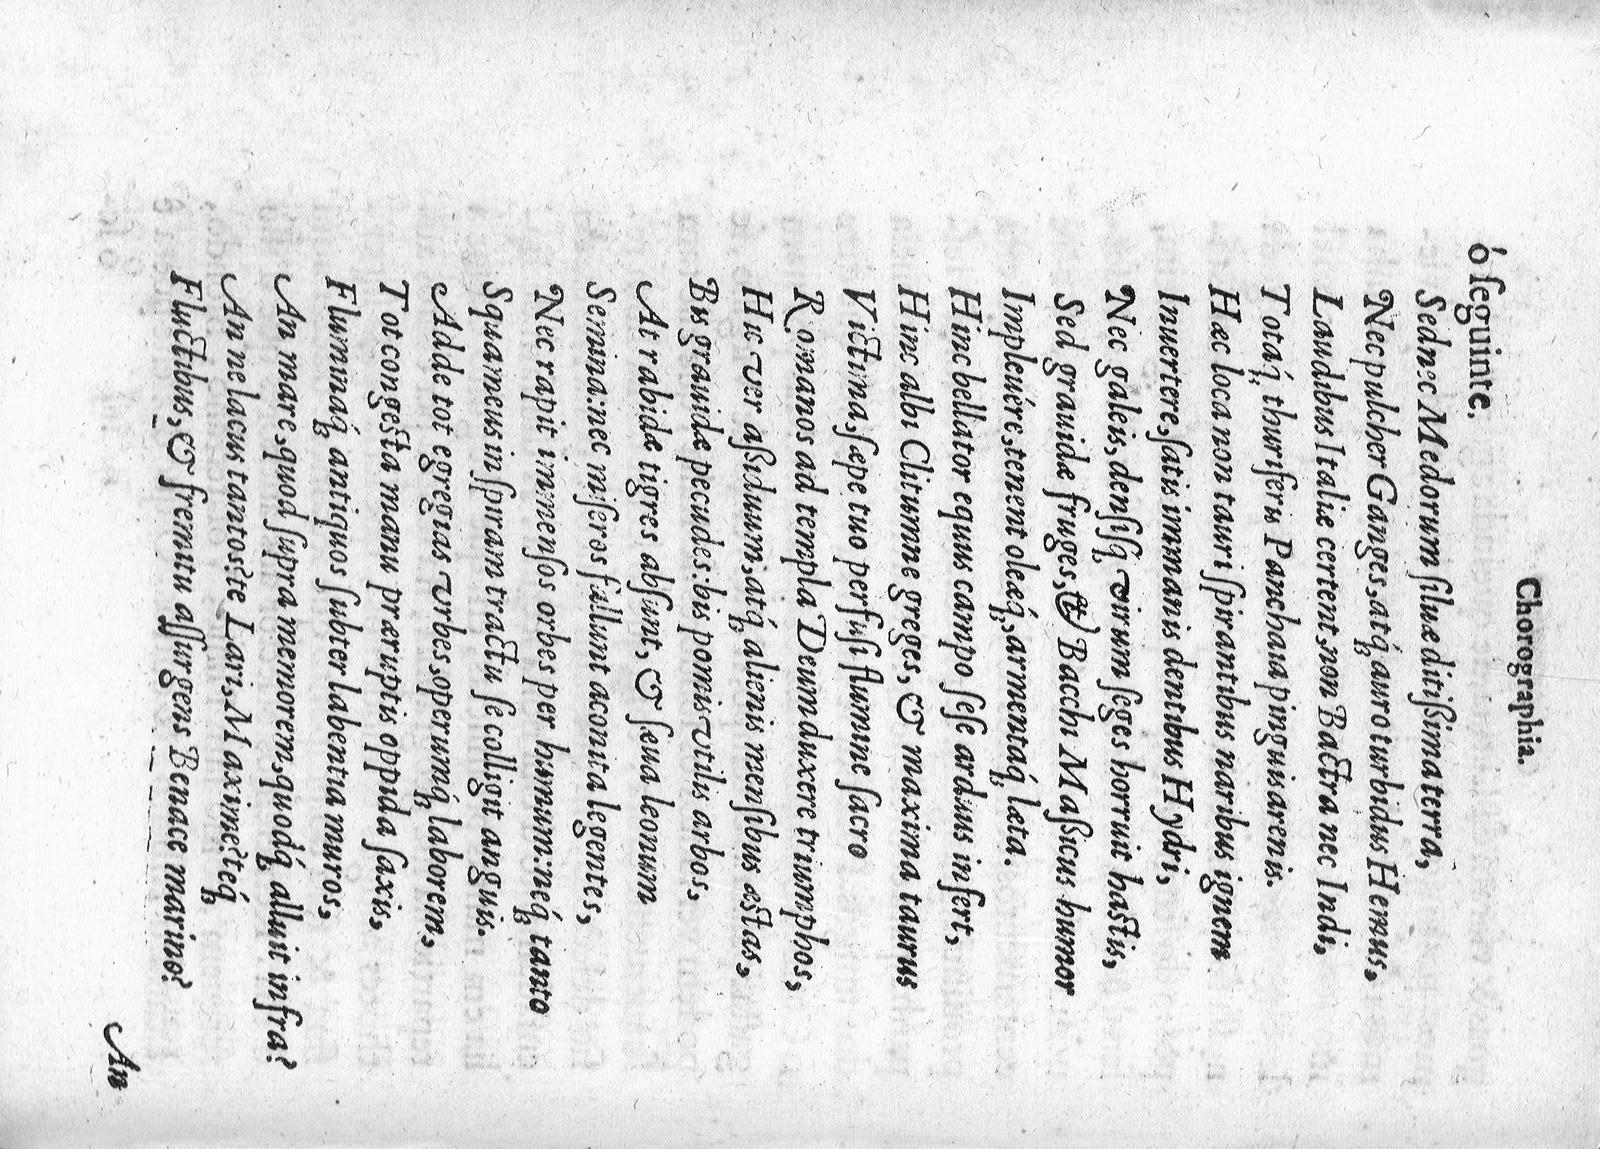 Chorographia.
ó ſeguinte.
Sed nec Medorum ſiluæ ditißima terra,
Nec pulcher Ganges, atq́; auro turbidus Hemus,
Laudibus Italiæ certent, non Bactra nec Indi,
Totaq́; thuriferis Panchaia pinguis arenis.
Hæc loca non tauri ſpirantibus naribus ignem
Inuertere, ſatis immanis dentibus Hydri,
Nec galeis, denſiſq; virum ſeges horruit haſtis,
Sed grauidæ fruges, & Bacchi Maßicus humor
Impleuére, tenent oleæq́;, armentaq́; læta.
Hinc bellator equus campo ſeſe arduus infert,
Hinc albi Clitumne greges, & maxima taurus
Victima, ſæpe tuo perfuſi flumine ſacro
Romanos ad templa Deum duxere triumphos,
Hic ver aßiduum, atq́; alienis menſibus æſtas,
Bis grauidæ pecudes: bis pomis vtilis arbos,
At rabidæ tigres abſunt, & ſeua leonum
Semina: nec miſeros fallunt aconita legentes,
Nec rapit immenſos orbes per humum: néq́; tanto
Squameus in ſpiram tractu ſe colligit anguis.
Adde tot egregias vrbes, operumq́; laborem,
Tot congeſta manu præruptis oppida ſaxis,
Fluminaq́; antiquos ſubter labentia muros,
An mare, quod ſupra memorem, quodq́; alluit infra?
An ne lacus tantos? te Lari, Maxime? teq́;
Fluctibus, & fremitu aſſurgens Benace marino?
An